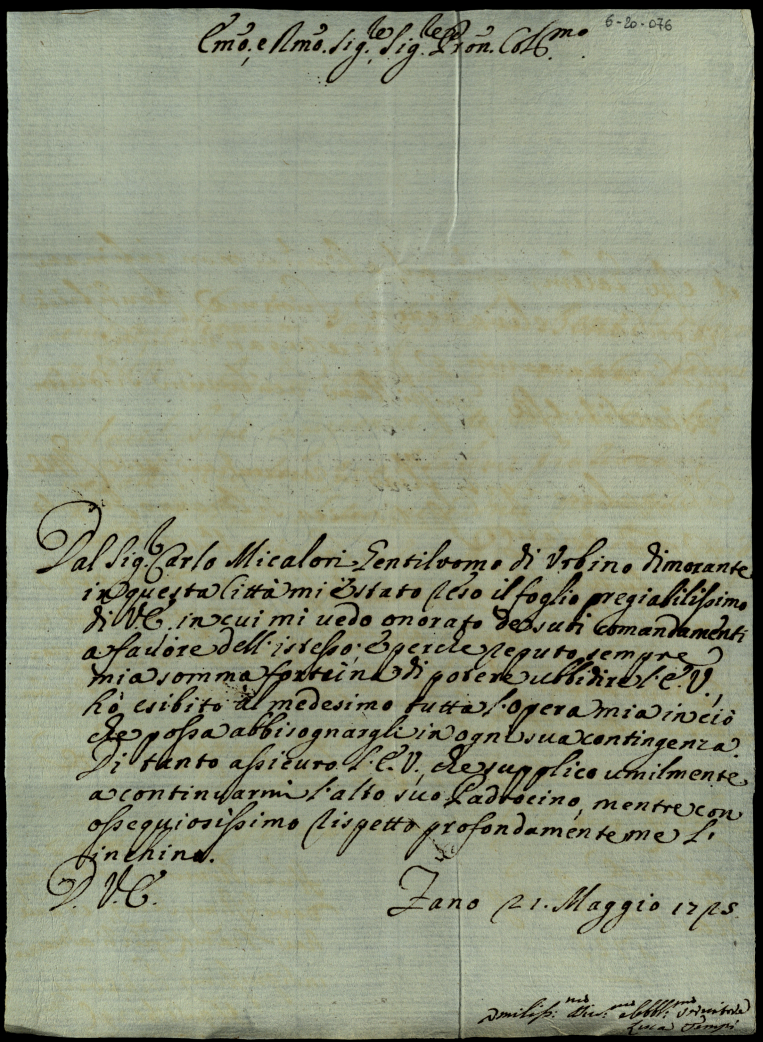 6-20-076
Em̃o, e Rmõ. Sig.re Sig.re Pron̄. Col.mo
Dal Sig.r Carlo Micalori Gentiluomo di Urbino dimorante
in questa Città mi è stato reso il foglio pregiatilissimo
di V.E. in cui mi vedo onorato de suoi comandamenti
a favore dell'istesso; E perche reputo sempre
mia somma fortuna di potere ubbidire l'E.V.,
hò esibito al medesimo tutta l'opera mia in ciò
che possa abbisognargli in ogni sua contingenza.
Di tanto assicuro l'E.V., che supplico umilmente
a continuarmi l'alto suo Padrocino, mentre con
ossequiosissimo rispetto profondamente me l'
inchino.
D. V. E.
Fano 21. Maggio 1725
Umiliss.mo Div.mo ed Obbl.mo Servitore
Luca Tempi